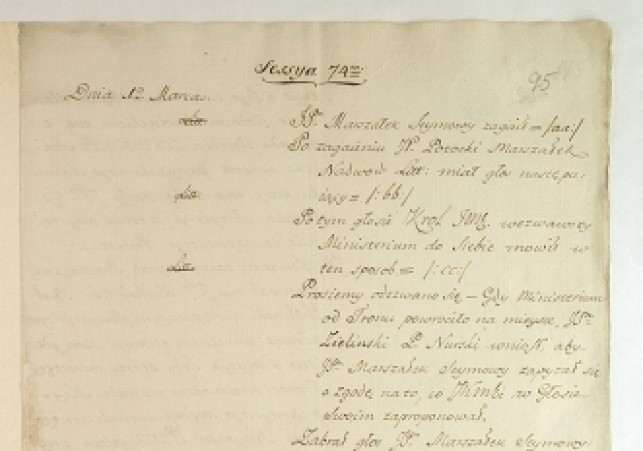 Sessya 74ta:
95
Dnia 12 Marca.
Litt:
JP. Marszałek Seymowy zagaił = /:aa:/
Po zagaiéniu JP. Potocki Marszałek
Nadwor: Litt: miał głos nastę pu-
iący = /:bb:/
Litt:
Po tym głosie Krol Jmć wezwawszy
Ministerium do siebie mowił w
ten sposob = /:cc:/
Litt:
Prosiemy odezwano się – Gdy Ministerium
od Tronu powrociło na mieysce, JP.
Zieliński P. Nurski wniosł, aby
JP. Marszałek Seymowy zapytał się
o zgodę na to, co w Głosie
Swoim zaproponował.
Zabrał głos JP. Marszałek Seymowy